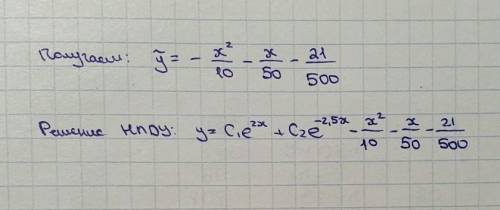 Получаем: ỹ = - x²/10 - x/50 - 21/500
Решение НПДУ: y = C₁e^{2x} + C₂e^{-2,5x} - x²/10 - x/50 - 21/500